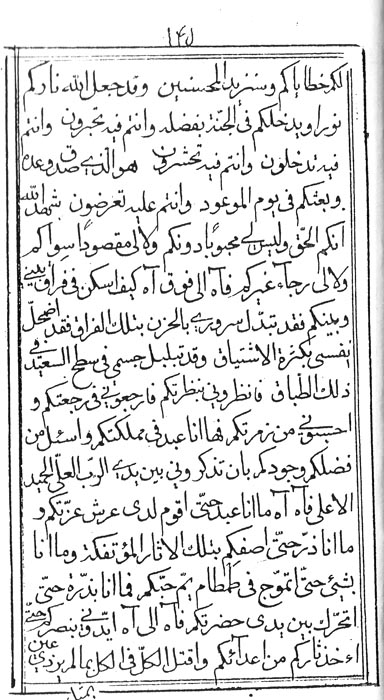 ١٤٨
لكم خطاياكم وسنزيد المحسنين وقد جعل الله ناركم
نورا ويدخلكم في الجنة بفضله وانتم فيه تحبرون وانتم
فيه تدخلون وانتم فيه تحشرون هو الذي صدق وعده
وبعثكم في يوم الموعود وانتم عليه تعرضون شهد الله
انكم الحق وليس لي محبوبا دونكم ولا لي مقصودا سواكم
ولا لي رجاء غيركم فآه الى فوق آه كيف اسكن في فراق بيني
وبينكم فقد تبدل سروري بالحزن بتلك الفراق فقد اضمحل
نفسي بكثرة الاشتياق وقد تبلبل جسمي في سطح السعير في
ذلك الطباق فانظروني بنظرتكم فارجعوني في رجعتكم و
احسبوني من زمرتكم فها انا عبد في مملكتكم واسئل من
فضلكم وجودكم بان تذكروني بين يدي الرب العلي الحميد
الاعلى فآه آه ما انا عبد حتى اقوم لدى عرش عزتكم و
ما انا ذر حتى اصفكم بتلك الاثار المؤتفكة وما انا
بشيء حتى اتموج في طمطام يم حبكم فما انا بذرة حتى
اتحرك بين يدي حضرتكم فآه الى آه ايدوني بنصركم حتى
اءخذ ثاركم من اعدائكم واقتل الكل في الكل بما لم ير ذي عين